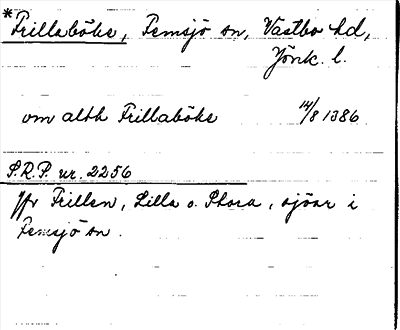 *Frillaböke, Femsjö sn, Västbo hd,
Jönk. l.
om alth Frillaböke 14/8 1386
S.R.P. nr. 2256
Jfr Frillen, Lilla o. Stora, sjöar i
Femsjö sn.